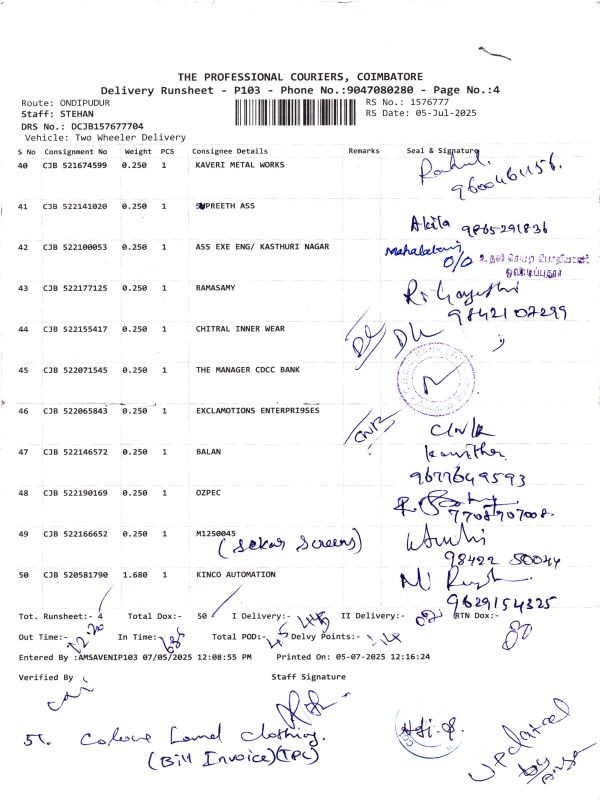 THE PROFESSIONAL COURIERS, COIMBATORE
Delivery Runsheet - P103 - Phone No.:9047080280 - Page No.:4
Route: ONDIPUDUR RS No.: 1576777
Staff: STEHAN RS Date: 05-Jul-2025
DRS No.: DCJB157677704
Vehicle: Two Wheeler Delivery
S No Consignment No Weight PCS Consignee Details Remarks Seal & Signature
40 CJB 521674599 0.250 1 KAVERI METAL WORKS Rahul.
9600461156.
41 CJB 522141020 0.250 1 SUPREETH ASS
Akila 9865291836
42 CJB 522100053 0.250 1 ASS EXE ENG/ KASTHURI NAGAR O/O உதவி செயற் பொறியாளர்
ஒண்டிப்புதூர்
43 CJB 522177125 0.250 1 RAMASAMY R. Gayathri
9842107299
44 CJB 522155417 0.250 1 CHITRAL INNER WEAR DL DL
45 CJB 522071545 0.250 1 THE MANAGER CDCC BANK
46 CJB 522065843 0.250 1 EXCLAMOTIONS ENTERPRI9SES CNR C/N/R
47 CJB 522146572 0.250 1 BALAN Kavitha
9677649593
48 CJB 522190169 0.250 1 OZPEC
7708707008.
49 CJB 522166652 0.250 1 M1250045
(Sekar Screens)
98422 50044
50 CJB 520581790 1.680 1 KINCO AUTOMATION
9629154325
Tot. Runsheet:- 4 Total Dox:- 50 I Delivery:- II Delivery:- RTN Dox:-
Out Time:- 12.20 In Time:- Total POD:- 45 Delvy Points:-
Entered By :AMSAVENIP103 07/05/2025 12:08:55 PM Printed On: 05-07-2025 12:16:24
Verified By Staff Signature
51. Colour Land Clothing.
(Bill Invoice)(TPC)
Updated
by